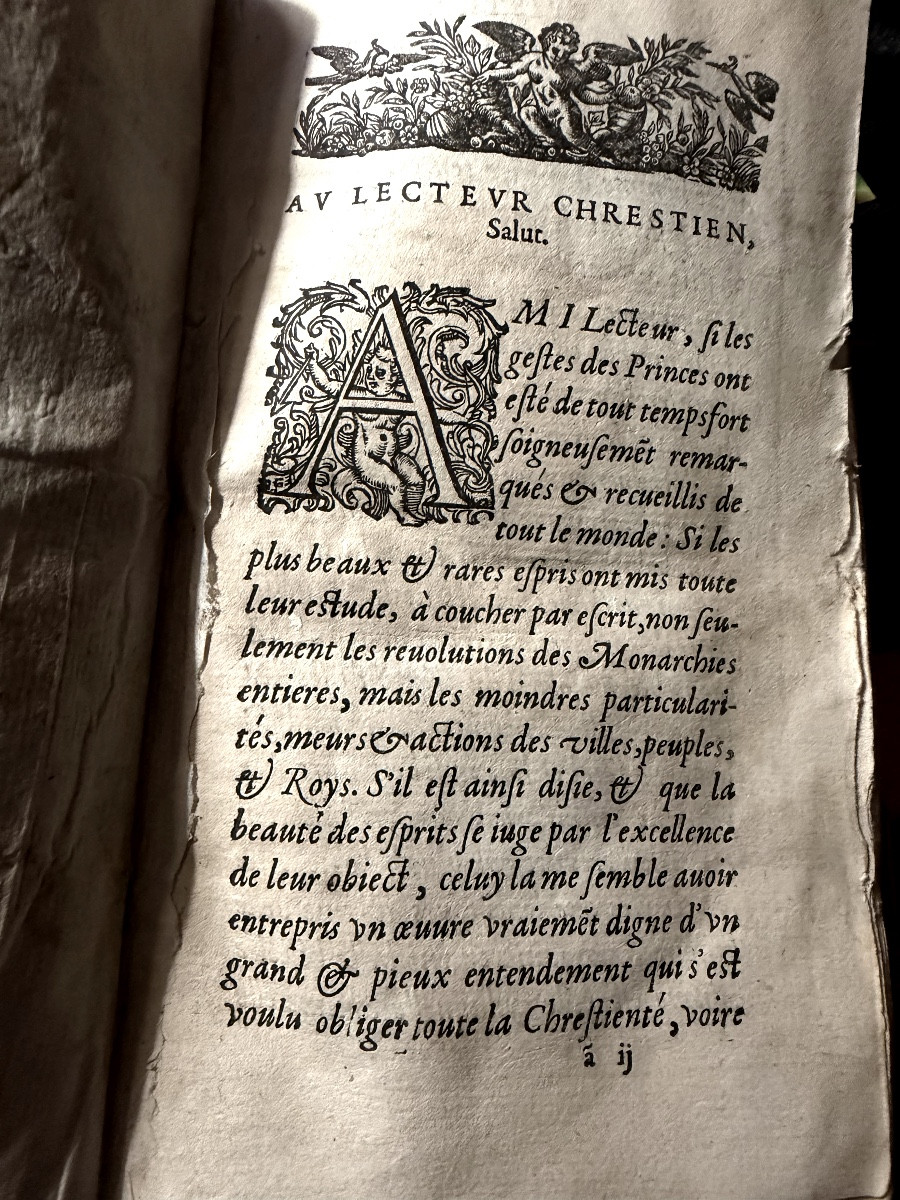 AV LECTEVR CHRESTIEN,
Salut.
AMI Lecteur, ſi les
geſtes des Princes ont
eſté de tout tempsfort
ſoigneuſemẽt remar-
qués & recueillis de
tout le monde: Si les
plus beaux & rares eſpris ont mis toute
leur eſtude, à coucher par eſcrit, non ſeu-
lement les reuolutions des Monarchies
entieres, mais les moindres particulari-
tés, meurs & actions des villes, peuples,
& Roys. S'il eſt ainſi diſie, & que la
beauté des eſprits ſe iuge par l'excellence
de leur obiect, celuy la me ſemble auoir
entrepris vn œuure vraiemẽt digne d'vn
grand & pieux entendement qui s'eſt
voulu obliger toute la Chreſtienté, voire
ã ij